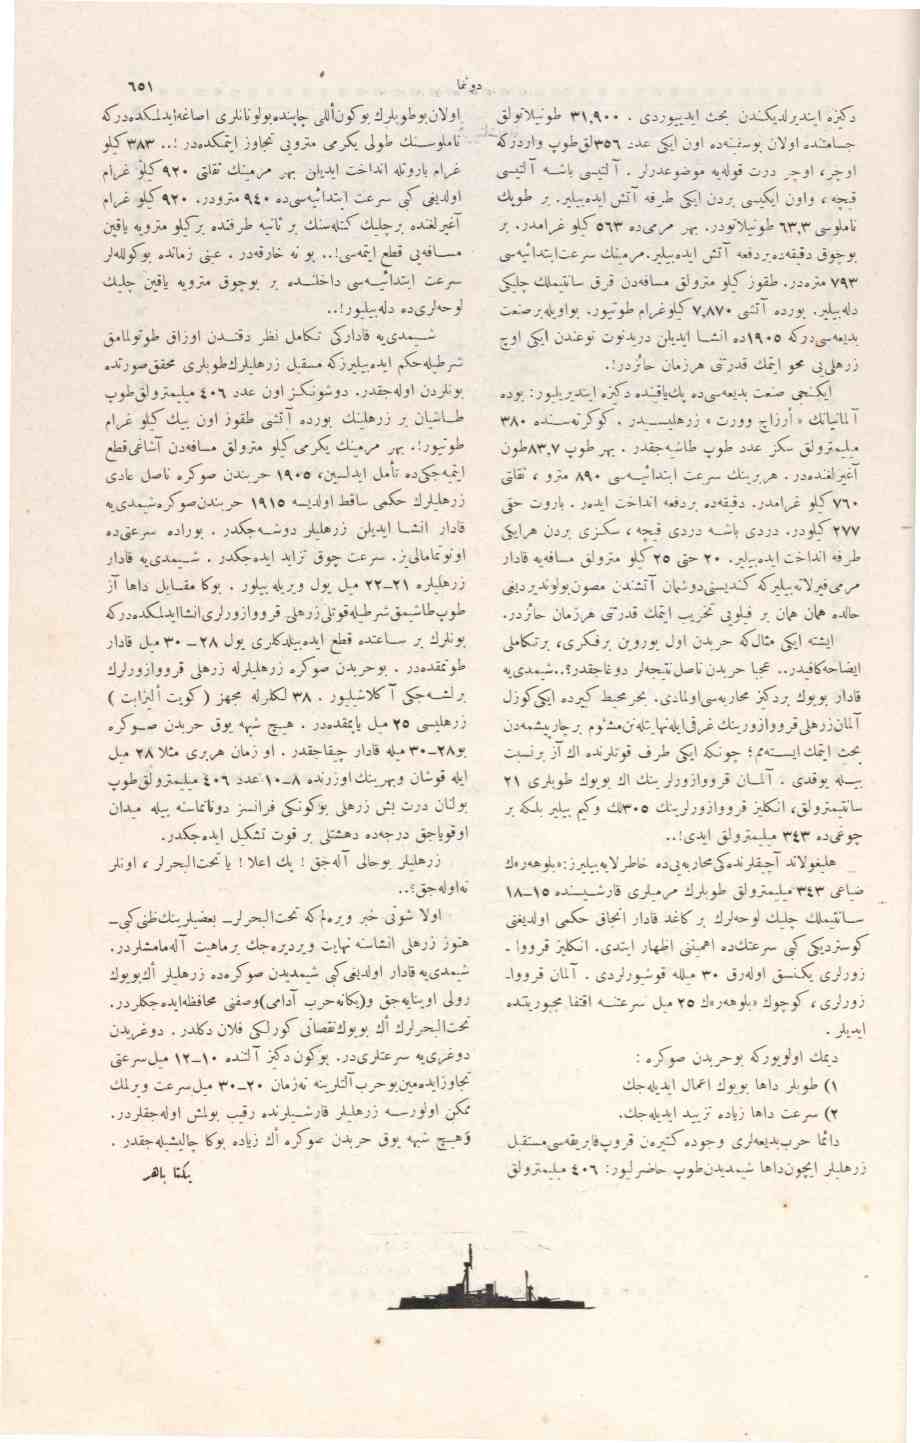 دوننما
٦٥١
دكيزه ايندير لديكندن بحث ايدييوردی . ٣١٫٩٠٠ طونيلاتولق
جسامتنده اولان بوسفينه‌ده اون ايكی عدد ٣٥٦لق طوپ واردركه
اوچر، اوچر درت قوله‌يه موضوعدرلر . آلتيسی باشه آلتيسی
قيچه ، واون ايكيسی بردن ايكی طرفه آتش ايده‌بيلير. بر طوپك
ناملوسی ٦٣٫٣ طونيلاتودر. بهر مرمی‌ده ٥٦٣ كيلو غرامدر. بر
بوچوق دقيقه‌ده بردفعه آتش ايده‌بيلير. مرمينك سرعت ابتدائيه‌سی
٧٩٣ متره‌در. طقوز كيلو مترولق مسافه‌دن قرق سانتيملك چليكی
دله‌بيلير. بورده آتشی ٧٫٨٧٠ كيلوغرام طوتيور. بواويله برصنعت
بديعه‌سی‌دركه ١٩٠٥ده انشا ايديلن دريدنوت نوعندن ايكی اوچ
زرهلی‌يی محو ايتمك قدرتنی هرزمان حائزدر!.
ايكنجی صنعت بديعه‌سی‌ده پك‌ياقينده دكيزه ايندير‌يليور: بوده
آلمانيانك « أرزاچ وورت » زرهليسيدر . كوكرته‌سنده ٣٨٠
ميليمترولق سكز عدد طوپ طاشيه‌جقدر . بهر طوپ ٨٣٫٧طون
آغيرلغنده‌در . هربرينك سرعت ابتدائيه‌سی ٨٩٠ مترو ، ثقلتی
٧٦٠ كيلو غرامدر. دقيقه‌ده بردفعه انداخت ايدر . باروت حقی
٢٧٧ كيلودر. دردی باشه دردی قيچه ، سكزی بردن هرايكی
طرفه انداخت ايده‌بيلير. ٢٠ حتی ٢٥ كيلو مترولق مسافه‌يه قادار
مرمی‌فيرلاته‌بيليركه كنديسنی‌دوشمان آتشندن مصون‌بولونديرديغی
حالده همان همان بر فيلويی تخريب ايتمك قدرتنی هرزمان حائزدر.
ايشته ايكی مثال‌كه حربدن اول يوروين برفكری، برتكاملی
ايضاحه‌كافيدر.. عجبا حربدن ناصل نتيجه‌لر دوغاجقدر؟..شيمدی‌يه
قادار بويوك بردكيز محاربه‌سی‌اولمادی. بحر محيط كبيرده ايكی‌كوزل
آلمان‌زرهلی قرووازورينك غرقی‌ايله‌نهايتله‌نن‌مشئوم برچارپيشمه‌دن
بحث ايتمك ايسته‌مم؛ چونكه ايكی طرف قوتلرنده اك آز برنسبت
بيله يوقدی . آلمان قرووازورلر ينك اك بويوك طوبلری ٢١
سانتيمترولق، انكليز قرووازورلرينك ٣٠٥لك وكيم بيلير بلكه بر
چوغی‌ده ٣٤٣ ميليمترولق ايدی!..
هليغولاند آچيقلرنده‌كی‌محاربه‌يی‌ده خاطرلايه‌بيليرز:«بلوهه‌ر»ك
ضياعی ٣٤٣ ميليمترولق طوبلرك مرميلری قارشيسنده ١٥-١٨
سانتيملك چليك لوحه‌لرك بر كاغد قادار انجاق حكمی اولديغنی
كوسترديكی كبی سرعتك‌ده اهميتنی اظهار ايتدی. انكليز قرووا -
زورلری يك‌نسق اوله‌رق ٣٠ ميلله قوشيورلردی . آلمان قرووا-
زورلری، كوچوك «بلوهه‌ر»ك ٢٥ ميل سرعتنه اقتفا مجبوريتنده
ايديلر .
ديمك اولويوركه بوحربدن صوكره :
١) طوبلر داها بويوك اعمال ايديله‌جك
٢) سرعت داها زياده تزييد ايديله‌جك.
دائما حرب‌بديعه‌لری وجوده كتيره‌ن قروپ‌فابريقه‌سی‌مستقبل
زرهليلر ايچون‌داها شيمديدن‌طوپ حاضرليور: ٤٠٦ ميليمترولق
اولان بوطوبلرك بوكون‌أللی چاپنده‌بولونانلری اصاغه‌ايدلمكده‌دركه
ناملوسنك طولی يكرمی مترويی تجاوز ايتمكده‌در !.. ٣٨٣ كيلو
غرام باروتله انداخت ايديلن بهر مرمينك ثقلتی ٩٢٠ كيلو غرام
اولديغی كبی سرعت ابتدائيه‌سی‌ده ٩٤٠ مترودر. ٩٢٠ كيلو غرام
آغيرلغنده برچليك كتله‌سنك بر ثانيه ظرفنده بركيلو مترويه ياقين
مسافه‌يی قطع ايتمه‌سی!.. بو نه خارقه‌در . عينی زمانده بوكولله‌لر
سرعت ابتدائيه‌سی داخلنده بر بوچوق مترويه ياقين چليك
لوحه‌لری‌ده دله‌بيليور!..
شيمدی‌يه قاداركی تكامل نظر دقتدن اوزاق طوتولمامق
شرطيله‌حكم ايده‌بيليرزكه مستقبل زرهليلرك‌طوبلری محقق‌صورتده
بونلردن اوله‌جقدر. دوشونكز اون عدد ٤٠٦ ميليمترولق‌طوپ
طاشيان بر زرهلينك بورده آتشی طقوز اون بيك كيلو غرام
طوتيور!. بهر مرمينك يكرمی كيلو مترولق مسافه‌دن آشاغی‌قطع
ايتميه‌جكی‌ده تأمل ايدلسين، ١٩٠٥ حربندن صوكره ناصل عادی
زرهليلرك حكمی ساقط اولديسه ١٩١٥ حربندن‌صوكره‌شيمدی‌يه
قادار انشا ايديلن زرهليلر دوشه‌جكدر. بوراده سرعتی‌ده
اونوتمامالی‌يز. سرعت چوق تزايد ايده‌جكدر. شيمدی‌يه قادار
زرهليلره ٢١-٢٢ ميل يول ويريله بيلور . بوكا مقابل داها آز
طوپ‌طاشيمق‌شرطيله‌قوتلی‌زرهلی قرووازورلری‌انشاايدلمكده‌دركه
بونلرك بر ساعتده قطع ايده‌بيلدكلری يول ٢٨ - ٣٠ ميل قادار
طوتمقده‌در . بوحربدن صوكره زرهليلرله زرهلی قرووازورلرك
برلشه‌جكی آكلاشيليور . ٣٨ لكلرله مجهز ( كويت أليزابت )
زرهليسی ٢٥ ميل ياپمقده‌در . هيچ شبهه يوق حربدن صوكره
بو٢٨-٣٠ ميله قادار چيقاجقدر . او زمان هربری مثلا ٢٨ ميل
ايله قوشان وبهرينك اوزرنده ٨-١٠عدد ٤٠٦ ميليمترولق‌طوپ
بولنان درت بش زرهلی بوكونكی فرانسز دوناتماسنه بيله ميدان
اوقوياجق درجه‌ده دهشتلی بر قوت تشكيل ايده‌جكدر.
زرهليلر بوحالی آله‌جق ! پك اعلا ! يا تحت‌البحرلر ، اونلر
نه‌اوله‌جق؟..
اولا شونی خبر ويره‌لم‌كه تحت‌البحرلر- بعضيلرينك‌ظنی‌كبی-
هنوز زرهلی انشاسنه نهايت ويرديره‌جك برماهيت آله‌مامشلردر.
شيمدی‌يه قادار اولديغی‌كبی شيمديدن صوكره‌ده زرهليلر أك‌بويوك
رولی اوينايه‌جق و(يكانه‌حرب آدامی)وصفنی محافظه‌ايده‌جكلردر.
تحت‌البحرلرك أك بويوك‌نقصانی كورلكی فلان دكلدر . دوغريدن
دوغری‌يه سرعتلری‌در. بوكون دكيز آلتنده ١٠-١٢ ميل‌سرعتی
تجاوزايده‌مين‌بوحرب‌آلتلرينه نه‌زمان ٢٠-٣٠ ميل‌سرعت ويرلمك
ممكن اولورسه زرهليلر قارشيلرنده رقيب بولمش اوله‌جقلردر.
وهيچ شبهه يوق حربدن صوكره أك زياده بوكا چاليشيله‌جقدر .
يكتا باهر